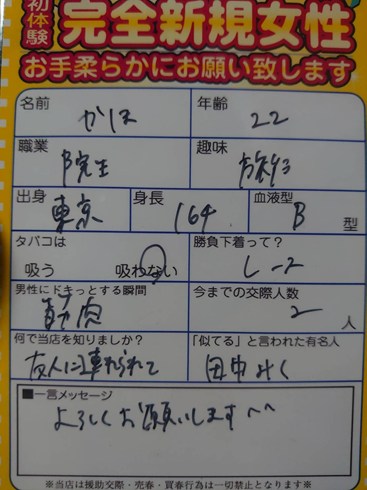 初体験 完全新規女性
お手柔らかにお願い致します
名前 かほ 年齢 22
職業 院生 趣味 旅行
出身 東京 身長 164 血液型 B 型
タバコは 吸う 吸わない 勝負下着って? レース
男性にドキッとする瞬間 筋肉 今までの交際人数 2 人
何で当店を知りましたか? 友人に連れられて 「似てる」と言われた有名人 田中みく
■一言メッセージ
よろしくお願いします^^
※当店は援助交際・売春・買春行為は一切禁止となります※